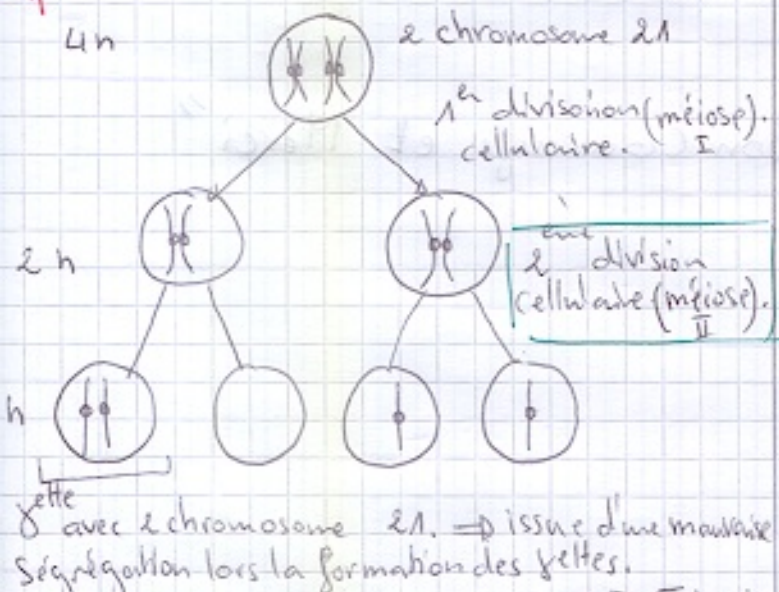 4n
2 chromosome 21
1er divisonion (méiose).
cellulaire. I
2n
2ème division
cellulaire (méiose).
II
n
γette avec 2 chromosome 21. ⇒ issue d'une mauvaise
ségrégation lors la formation des γettes.